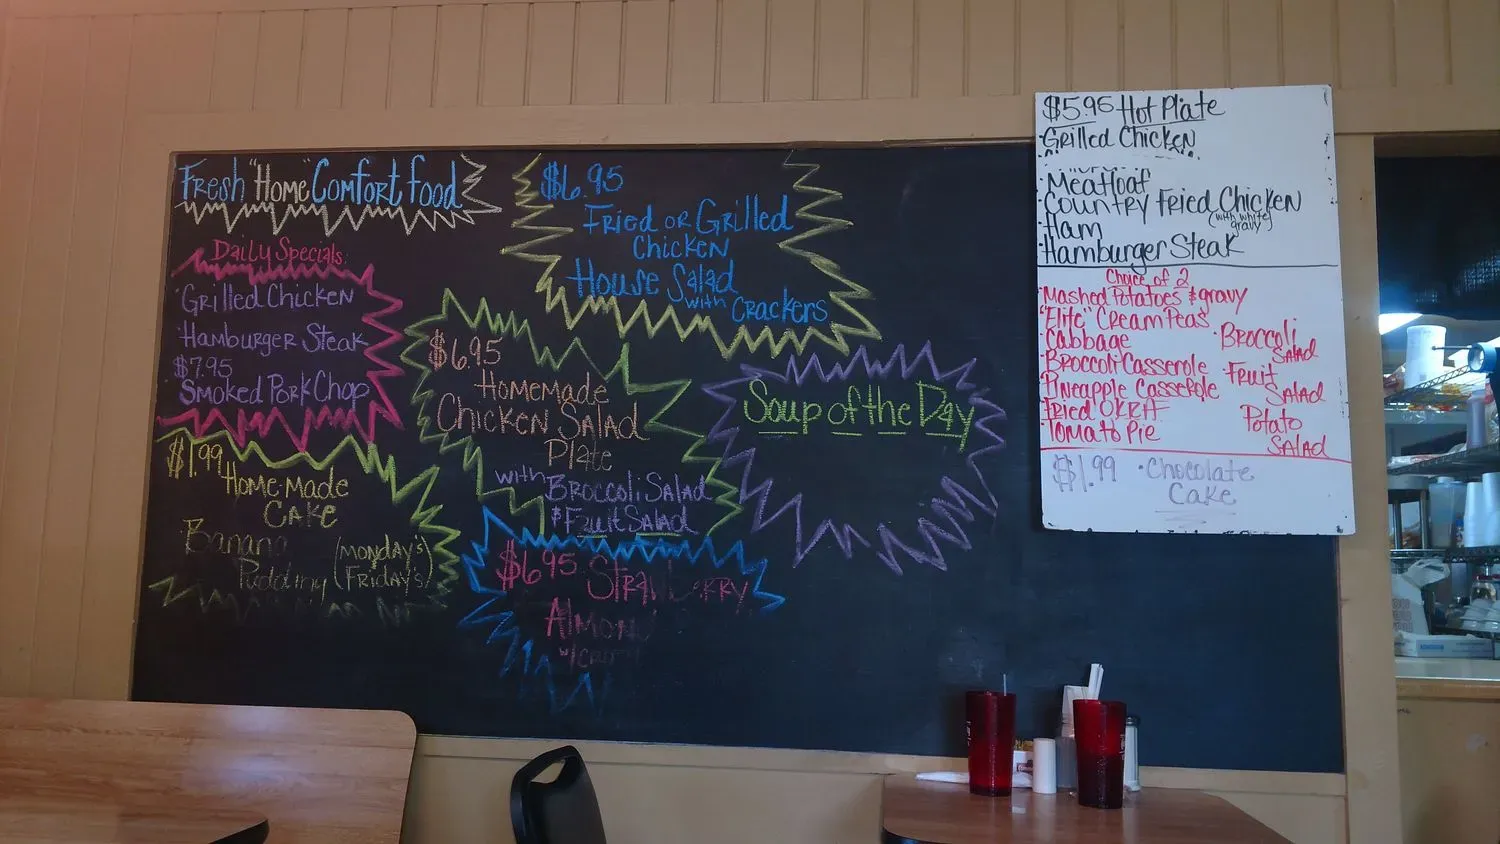 Fresh "Home" Comfort food
Daily Specials
· Grilled Chicken
· Hamburger Steak
$7.95
Smoked Pork Chop
$1.99
Homemade
Cake
Banana
Pudding
(Monday's
Friday's)
$6.95
Fried or Grilled
Chicken
House Salad
with Crackers
$6.95
Homemade
Chicken Salad
Plate
with Broccoli Salad
& Fruit Salad
$6.95
Soup of the Day
$5.95 Hot Plate
· Grilled Chicken
· Meatloaf
· Country Fried Chicken
(with white
gravy)
· Ham
· Hamburger Steak
Choice of 2
· Mashed Potatoes & gravy
· "Elite" Cream Peas
· Cabbage
· Broccoli Casserole
· Pineapple Casserole
· Fried OKRA
· Tomato Pie
· Broccoli
Salad
· Fruit
Salad
Potato
Salad
$1.99
· Chocolate
Cake